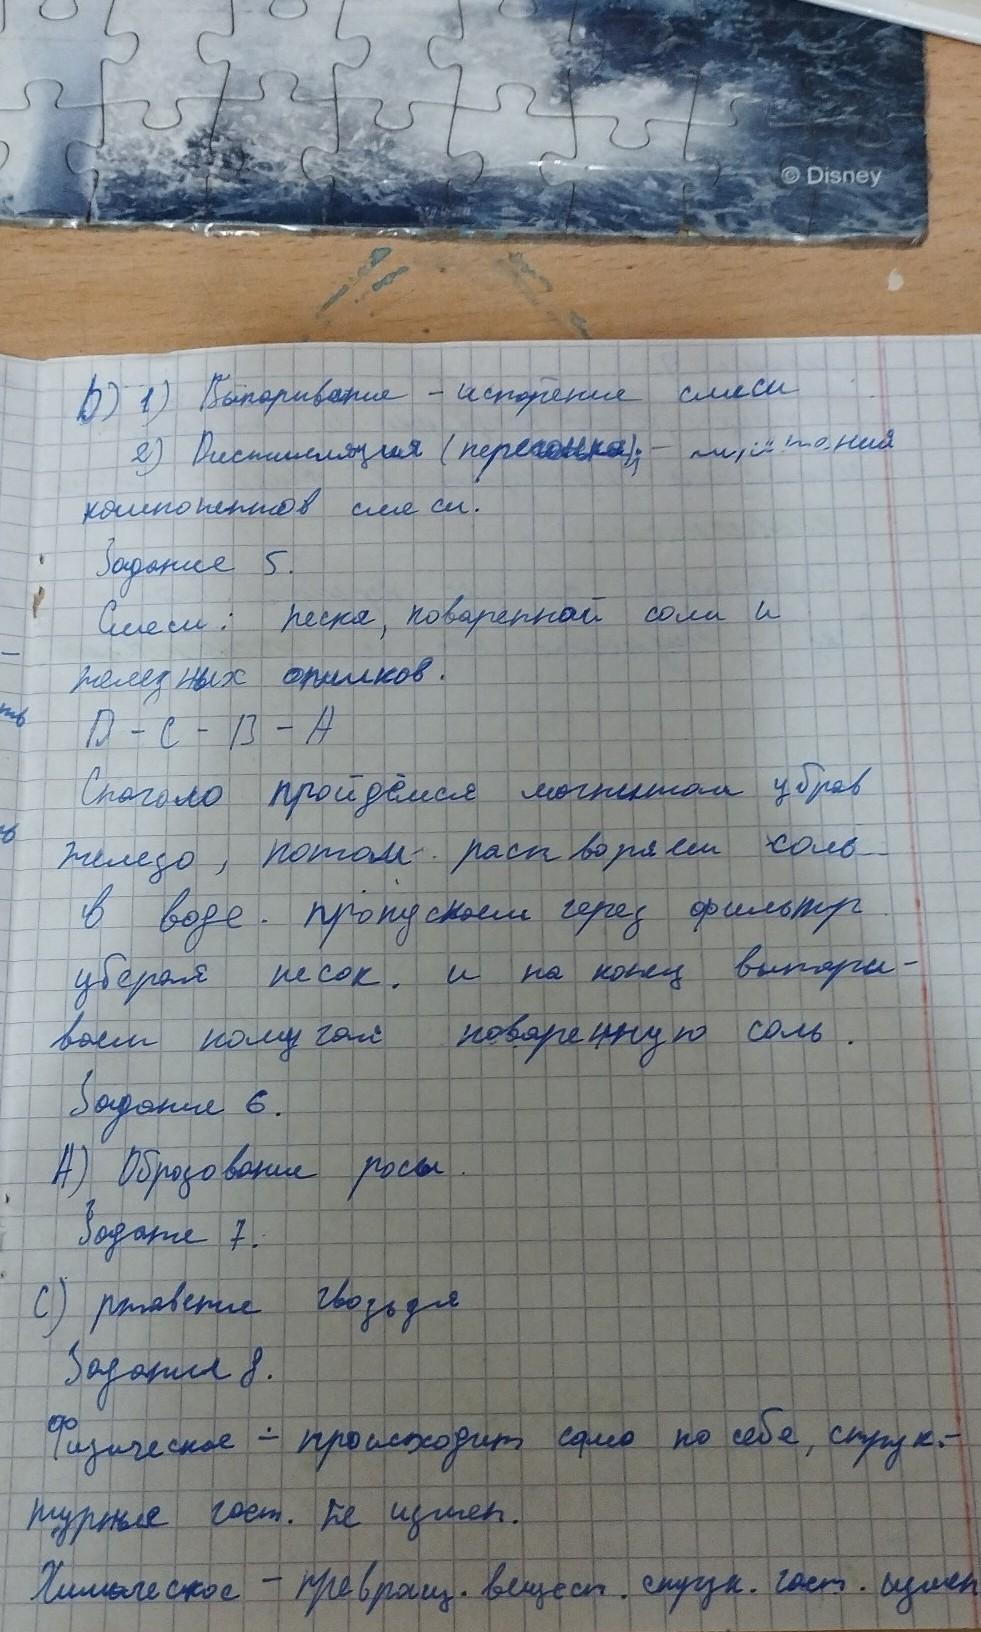 © Disney
D) 1) Выпаривание – испорение смеси
2) Дистилляция (перегонка); –
компонентов смеси.
Задание 5.
Смеси: песка, поваренной соли и
железных опилков.
D – C – B – A
Сначало пройдёмся магнитом убрав
железо, потом растворяем соль
в воде. пропускаем через фильтр
уберая песок. и на конец выпари-
ваем получая поваренную соль.
Задание 6.
А) Образование росы.
Задание 7.
С) ржавение гвоздья
Задания 8.
Физическое – происходит само по себе, струк-
турные част. не измен.
Химическое – превращ. вещест. струк. част. измен
ть